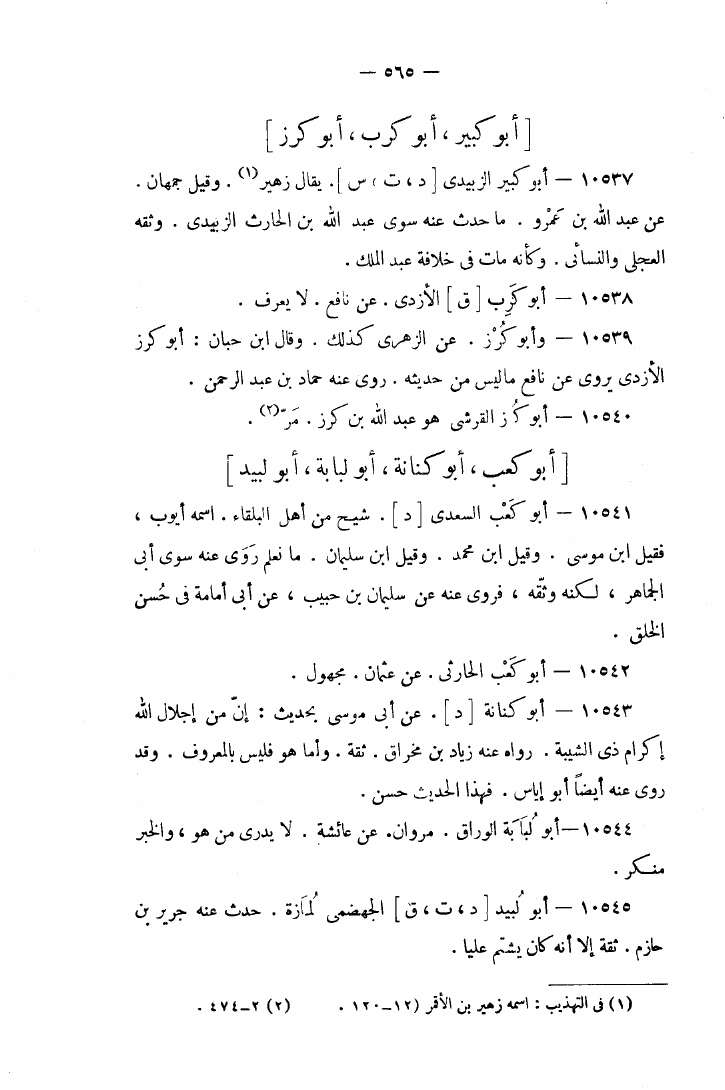 — ٥٦٥ —
[ أبو كبير ، أبو كرب ، أبو كرز ]
١٠٥٣٧ — أبو كبير الزبيدى [ د ، ت ، س ] . يقال زهير (١) . وقيل جمهان .
عن عبد الله بن عَمْرو . ما حدث عنه سوى عبد الله بن الحارث الزبيدى . وثقه
العجلى والنسائى . وكأنه مات فى خلافة عبد الملك .
١٠٥٣٨ — أبو كَرِب [ ق ] الأزدى . عن نافع . لا يعرف .
١٠٥٣٩ — وأبو كُرْز . عن الزهرى كذلك . وقال ابن حبان : أبو كرز
الأزدى يروى عن نافع ماليس من حديثه . روى عنه حماد بن عبد الرحمن .
١٠٥٤٠ — أبو كُرز القرشى هو عبد الله بن كرز . مَرّ (٢) .
[ أبو كعب ، أبو كنانة ، أبو لبابة ، أبو لبيد ]
١٠٥٤١ — أبو كَعْب السعدى [ د ] . شيخ من أهل البلقاء . اسمه أيوب ،
فقيل ابن موسى . وقيل ابن محمد . وقيل ابن سليمان . ما نعلم رَوَى عنه سوى أبى
الجماهر ، لكنه وثّقه ، فروى عنه عن سليمان بن حبيب ، عن أبى أمامة فى حُسن
الخلق .
١٠٥٤٢ — أبو كَعْب الحارثى . عن عثمان . مجهول .
١٠٥٤٣ — أبو كنانة [ د ] . عن أبى موسى بحديث : إنّ من إجلال الله
إكرام ذى الشيبة . رواه عنه زياد بن مخراق . ثقة . وأما هو فليس بالمعروف . وقد
روى عنه أيضاً أبو إياس . فهذا الحديث حسن .
١٠٥٤٤ — أبو لُبَابَة الوراق . مروان . عن عائشة . لا يدرى من هو ، والخبر
منكر .
١٠٥٤٥ — أبو لُبيد [ د ، ت ، ق ] الجهضمى لُمَازة . حدث عنه جرير بن
حازم . ثقة إلا أنه كان يشتم عليا .
(١) فى التهذيب : اسمه زهير بن الأقمر (١٢-١٢٠ . (٢) ٢-٤٧٤ .